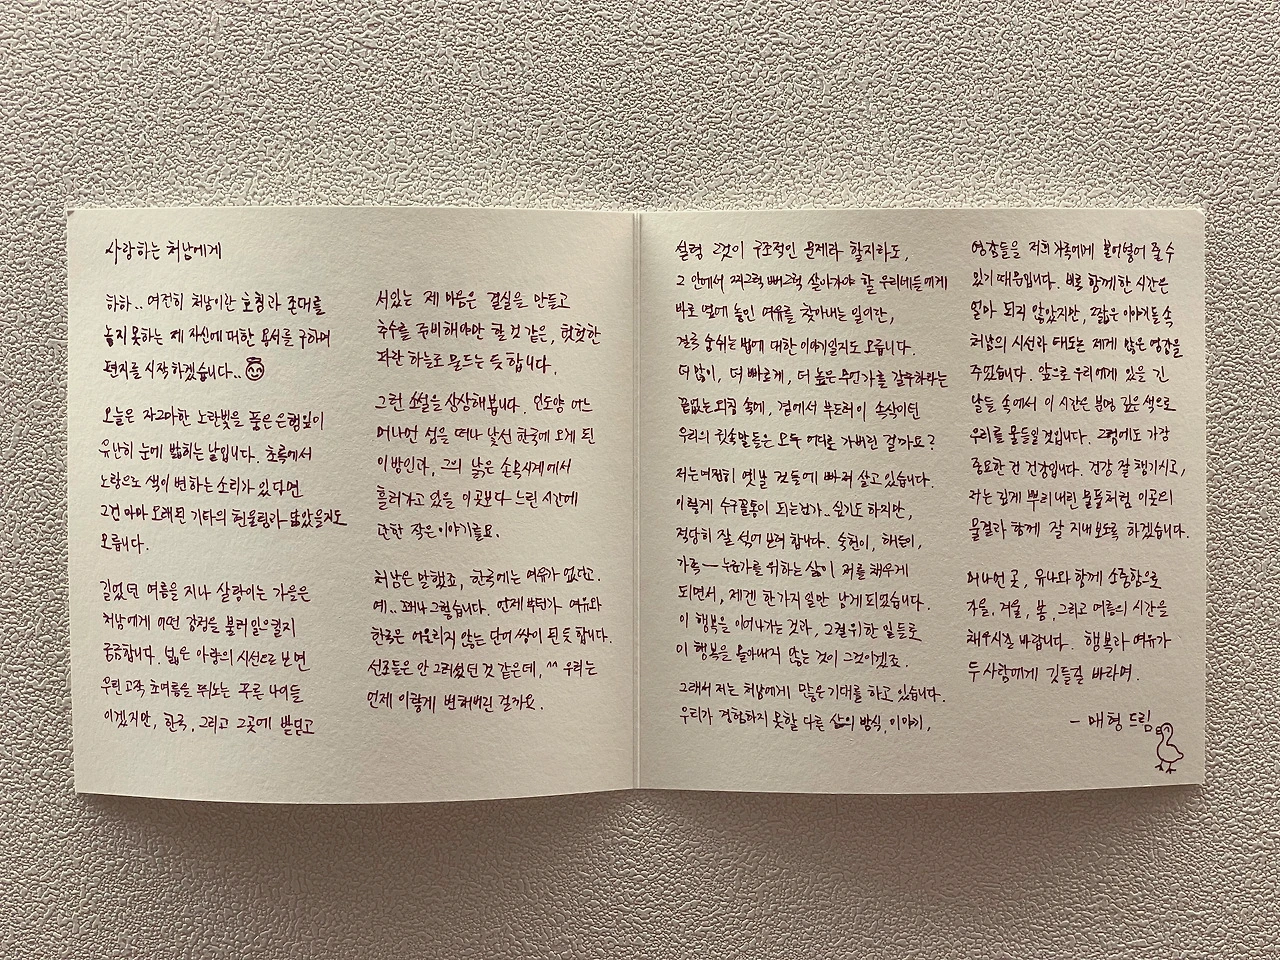 사랑하는 처남에게
하하.. 여전히 처남이란 호칭과 존대를
놓지 못하는 제 자신에 대한 용서를 구하며
편지를 시작하겠습니다..
오늘은 자그마한 노란빛을 품은 은행잎이
유난히 눈에 밟히는 날입니다. 초록에서
노랑으로 색이 변하는 소리가 있다면
그건 아마 오래된 기타의 헌 울림과 닮았을지도
모릅니다.
길었던 여름을 지나 살랑이는 가을은
처남에게 어떤 감정을 불러일으킬지
궁금합니다. 넓은 아량의 시선으로 보면
우린 고작 초여름을 뛰노는 푸른 나이들
이겠지만, 한국, 그리고 그곳에 발 딛고
서있는 제 마음은 결실을 만들고
추수를 준비해야만 할 것 같은, 텁텁한
파란 하늘로 물드는 듯 합니다.
그런 소설을 상상해봅니다. 인도양 어느
어나먼 섬을 떠나 낯선 한국에 오게 된
이방인과, 그의 낡은 손목시계에서
흘러가고 있을 이곳보다 느린 시간에
관한 작은 이야기를요.
처남은 말했죠, 한국에는 여유가 없다고.
예.. 꽤나 그렇습니다. 언제부턴가 여유와
한국은 어울리지 않는 단어 쌍이 된 듯 합니다.
선조들은 안 그러셨던 것 같은데, ^^ 우리는
언제 이렇게 변해버린 걸까요.
설령 그것이 구조적인 문제라 할지라도,
그 안에서 찌그럭 삐그럭 살아가야 할 우리네들에게
바로 옆에 놓인 여유를 찾아내는 일이란,
결국 숨쉬는 법에 대한 이야기일지도 모릅니다.
더 많이, 더 빠르게, 더 높은 무언가를 갈구하라는
끝없는 외침 속에, 곁에서 부드러이 속삭이던
우리의 귓속말들은 모두 어디로 가버린 걸까요?
저는 여전히 옛날 것들에 빠져 살고 있습니다.
이렇게 수구꼴통이 되는건가.. 싶기도 하지만,
적당히 잘 섞어보려 합니다. 숙현이, 해든이,
가족 — 누군가를 위하는 삶이 저를 채우게
되면서, 제겐 한가지 일만 남게 되었습니다.
이 행복을 이어나가는 것과, 그걸 위한 일들로
이 행복을 몰아내지 않는 것이 그것이겠죠.
그래서 저는 처남에게 많은 기대를 하고 있습니다.
우리가 경험하지 못할 다른 삶의 방식, 이야기,
영감들을 저희 가족에게 불어넣어 줄 수
있기 때문입니다. 비록 함께한 시간은
얼마 되지 않았지만, 짧은 이야기들 속
처남의 시선과 태도는 제게 많은 영감을
주었습니다. 앞으로 우리에게 있을 긴
날들 속에서 이 시간은 분명 깊은 색으로
우리를 물들일 것입니다. 그럼에도 가장
중요한 건 건강입니다. 건강 잘 챙기시고,
저는 깊게 뿌리내린 물풀처럼 이곳의
물결과 함께 잘 지내보도록 하겠습니다.
머나먼 곳, 유나와 함께 소중함으로
가을, 겨울, 봄, 그리고 여름의 시간을
채우시길 바랍니다. 행복과 여유가
두 사람에게 깃들길 바라며.
- 매형 드림